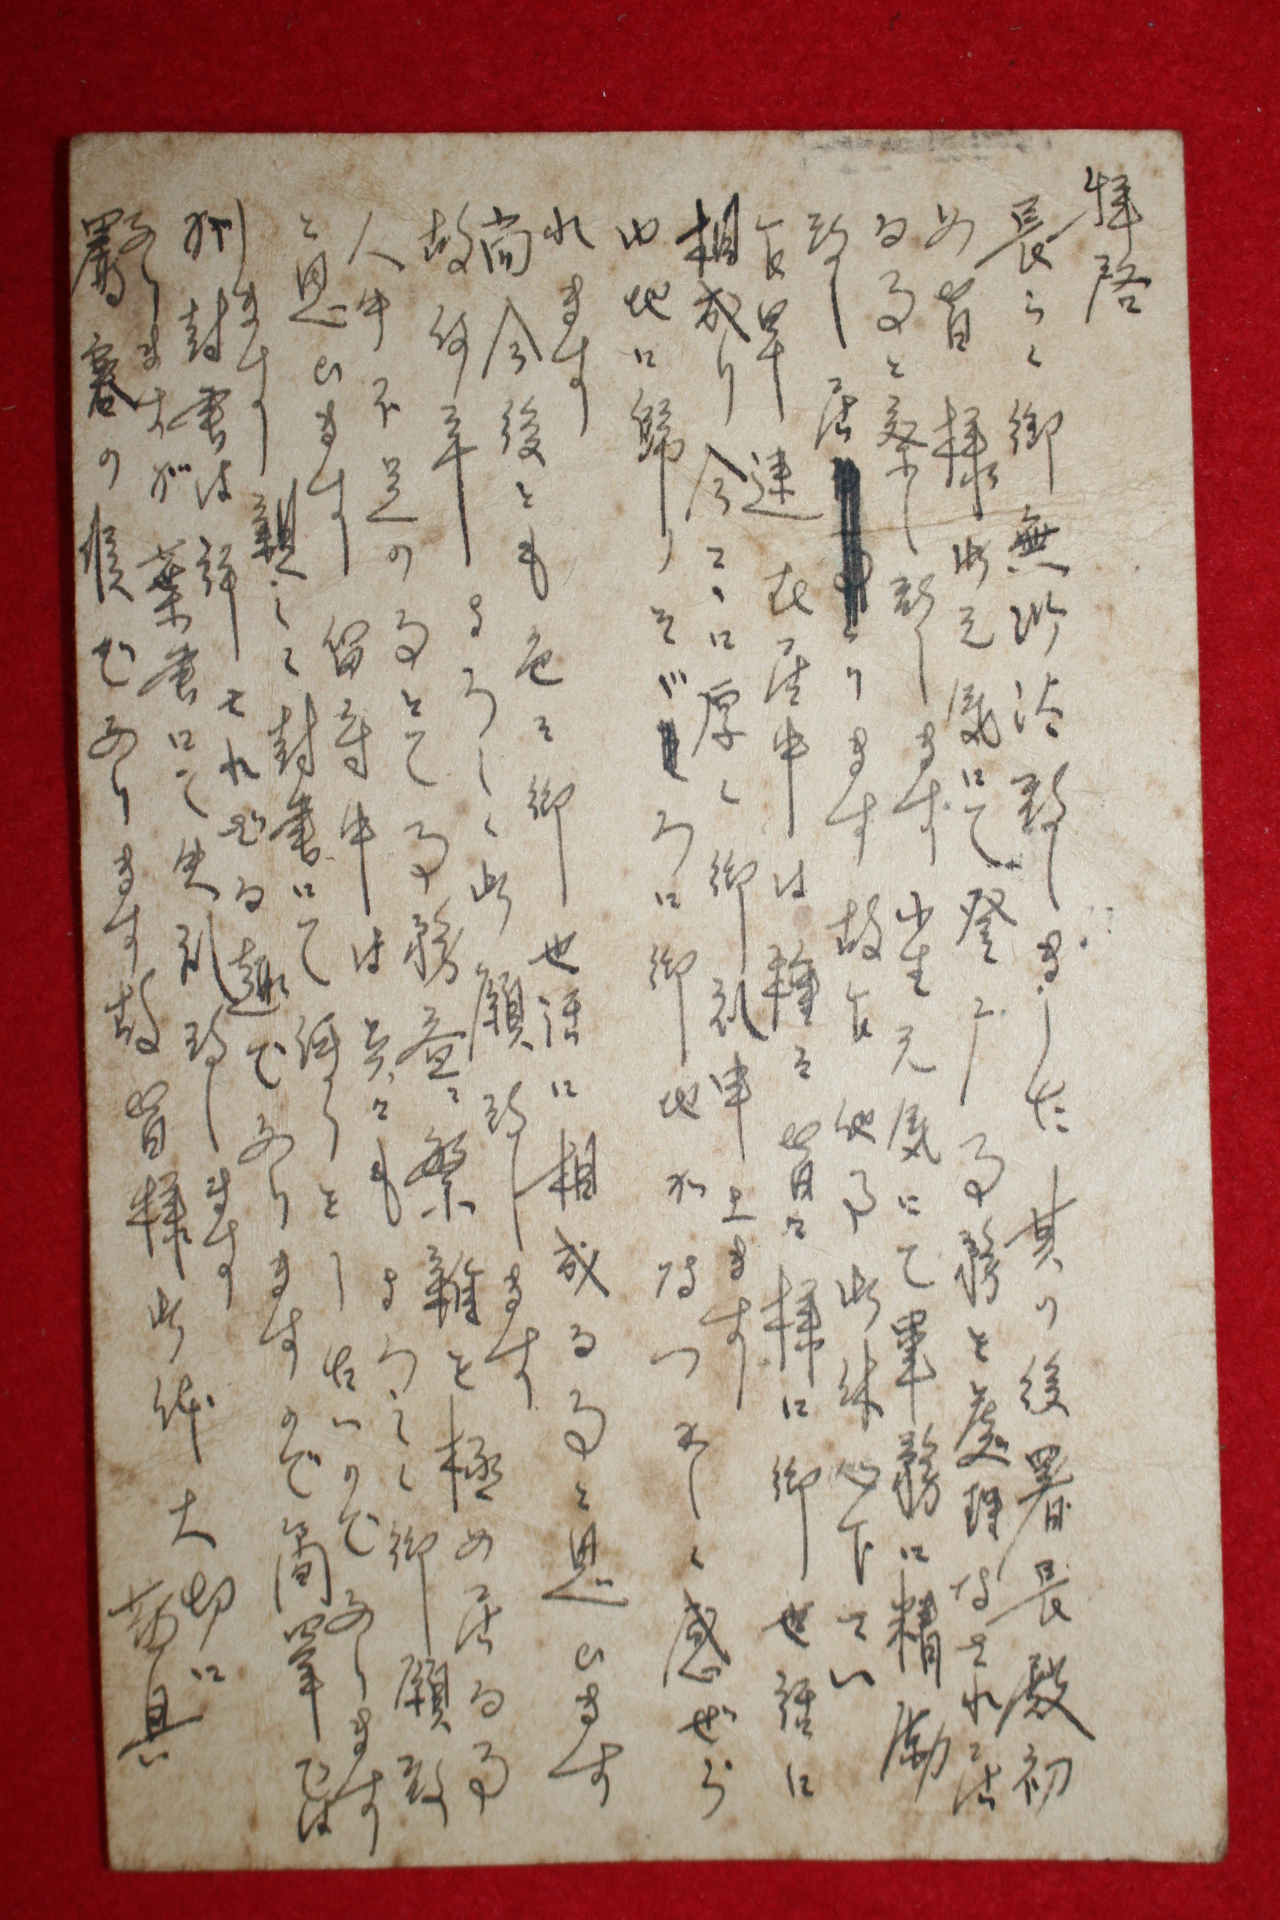 拝啓
長らく御無沙汰致しました 其の後署長殿初
め皆様此元気にて登庁 事務を處理なされ居
る事と察し致します 小生元気にて軍務に精勵
致し居ります故乍他事此休心下さい
乍早速在居中は種々皆々様に御世話に
相成り今ここに厚く御礼申上ます
内地に帰りそぞろに御地がなつかしく感ぜら
れます
尚今後とも色々御世話に相成る事と思ひます
故何卒よろしく此願致します
人手不足の為とて事務益々繁雑を極め居る事
と思ひます 留守中は呉々もよろしく御願致
します 親しく封書にて便りをしたいのであります
が封書は許されざる趣であります ので簡単では
ありますが葉書にて失礼致します
嚴寒の候であります故皆様此体大切に
敬具